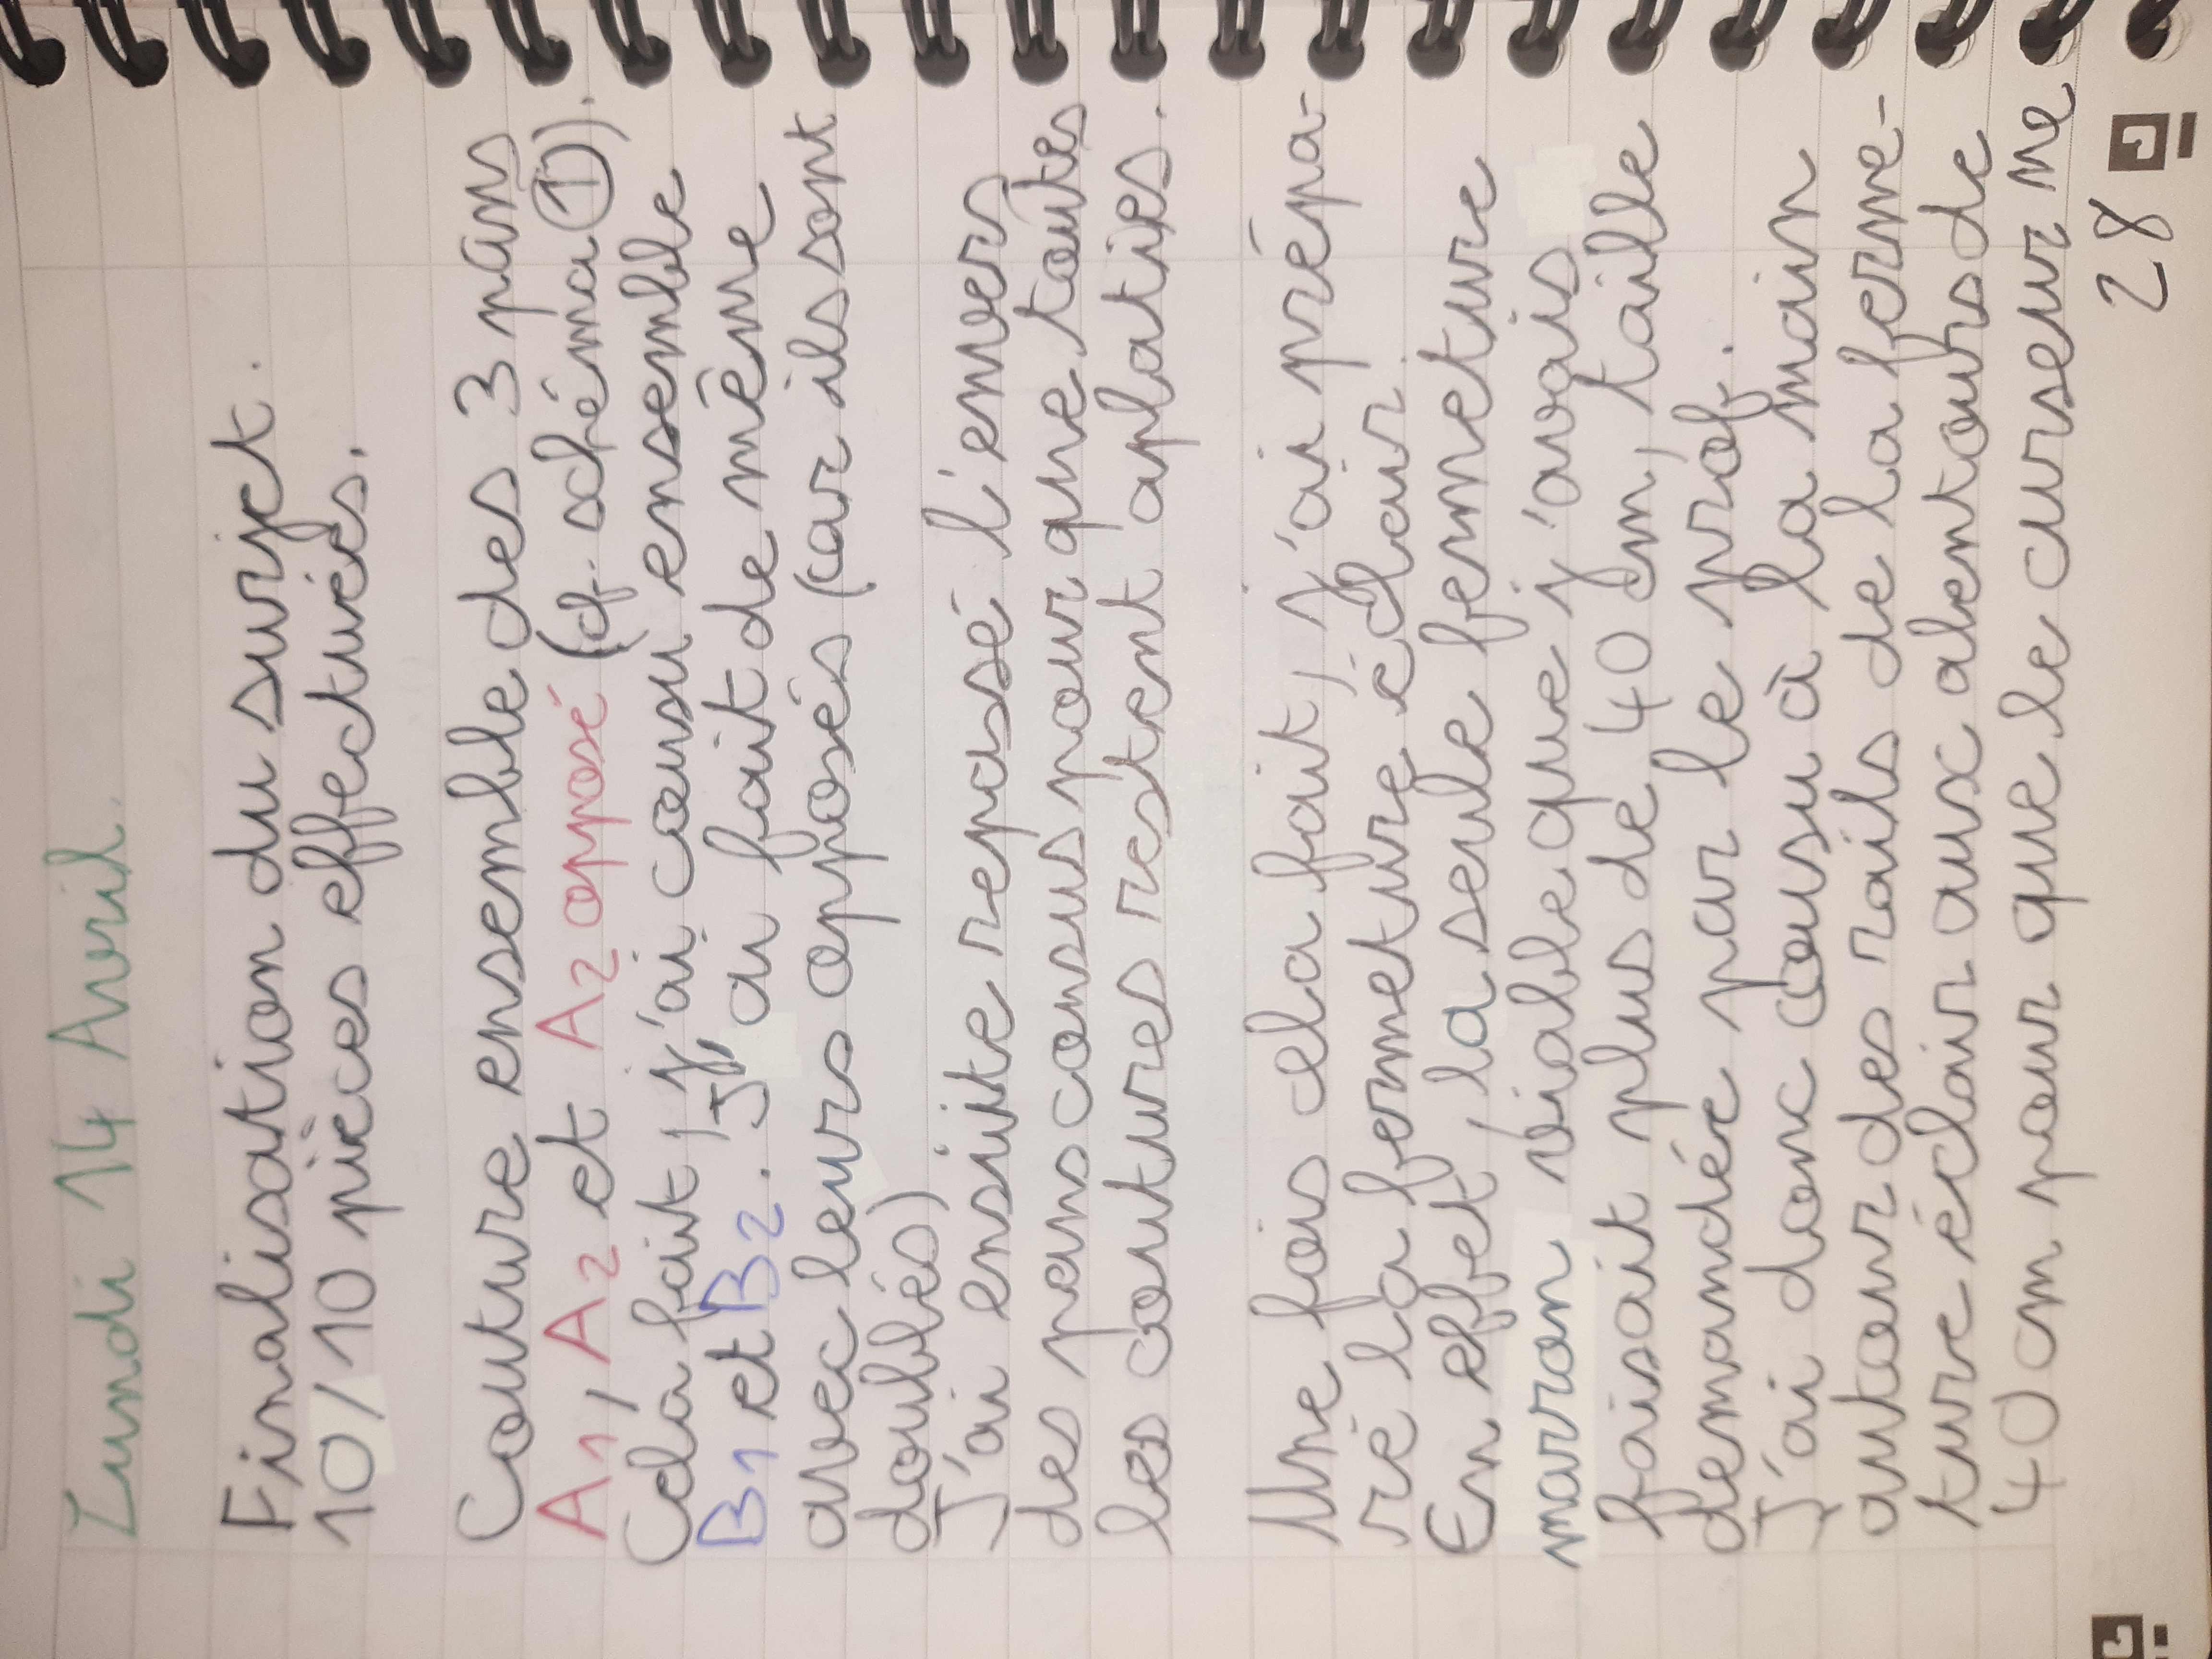 Lundi 14 Avril.
Finalisation du surjet.
10/10 pièces effectuées.
Couture ensemble des 3 pans
A1, A2 et A2 opposé (cf. schéma 1).
Cela fait, j'ai cousu ensemble
B1 et B2. J'ai fait de même
avec leurs opposés (car ils sont
doublés)
J'ai ensuite repassé l'envers
des pans cousus pour que toutes
les coutures restent aplaties.
Une fois cela fait, j'ai prépa-
ré la fermeture éclair.
En effet, la seule fermeture
marron viable que j'avais
faisait plus de 40 cm, taille
demandée par le prof.
J'ai donc cousu à la main
autour des rails de la ferme-
ture éclair aux alentours de
40 cm pour que le curseur ne
28